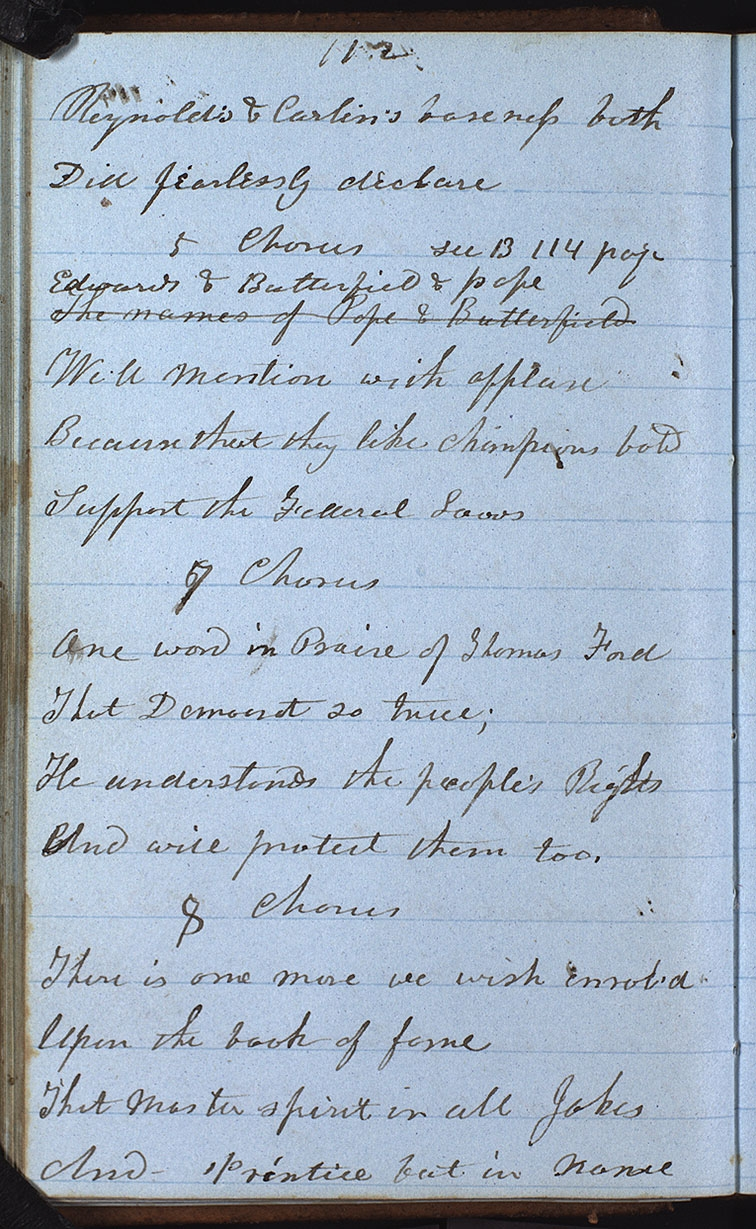 112
Reynold's & Carlin's baseness both
Did fearlessly declare
5 Chorus see B 114 page
Edwards & Butterfield & Pope
The names of Pope & Butterfield
We'll mention with applause
Because that they like champions bold
Support the Federal Laws
7 Chorus
One word in Praise of Thomas Ford
That Democrat so true;
He understands the people's Rights
And will protect them too.
8 Chorus
There is one more we wish enrol'd
Upon the book of fame
That Master spirit in all Jokes
And 'Prentice but in name